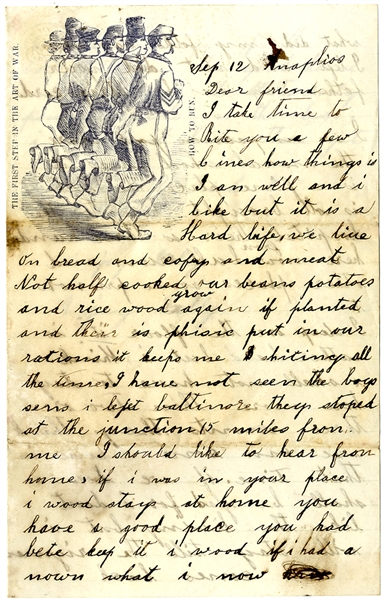 THE FIRST STEP IN THE ART OF WAR.
HOW TO RUN.
Sep 12 Anaplios
Dear friend
I take time to
Rite you a few
Lines how things is
I am well and i
like but it is a
Hard life, we live
on bread and cofy and meat
Not half cooked our beans potatoes
and rice wood grow again if planted
and their is phisic put in our
rations it keeps me shiting all
the time, I have not seen the boys
sens i left baltimore they stoped
at the junction 15 miles from
me I should like to hear from
home, if i was in your place
i wood stay at home you
have a good place you had
bete keep it i wood if i had a
nown what i now